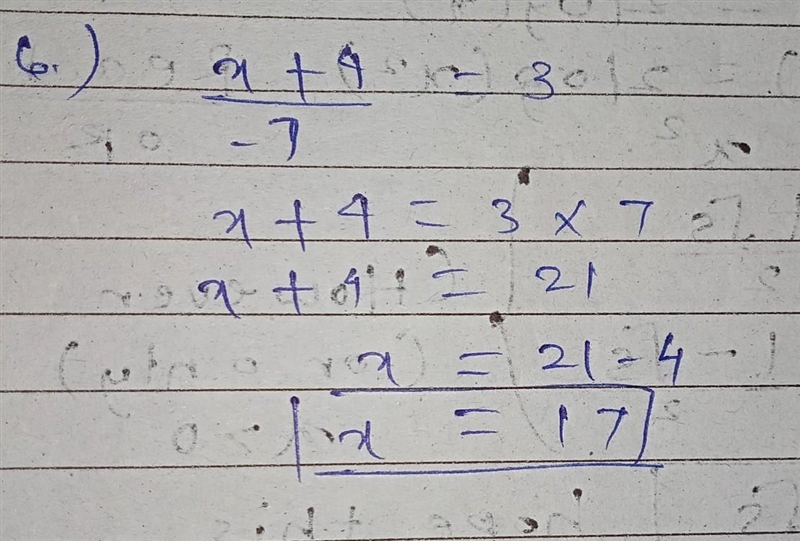 6.) x + 4 = 3
-7
x + 4 = 3 × 7
x + 4 = 21
x = 21 - 4
x = 17